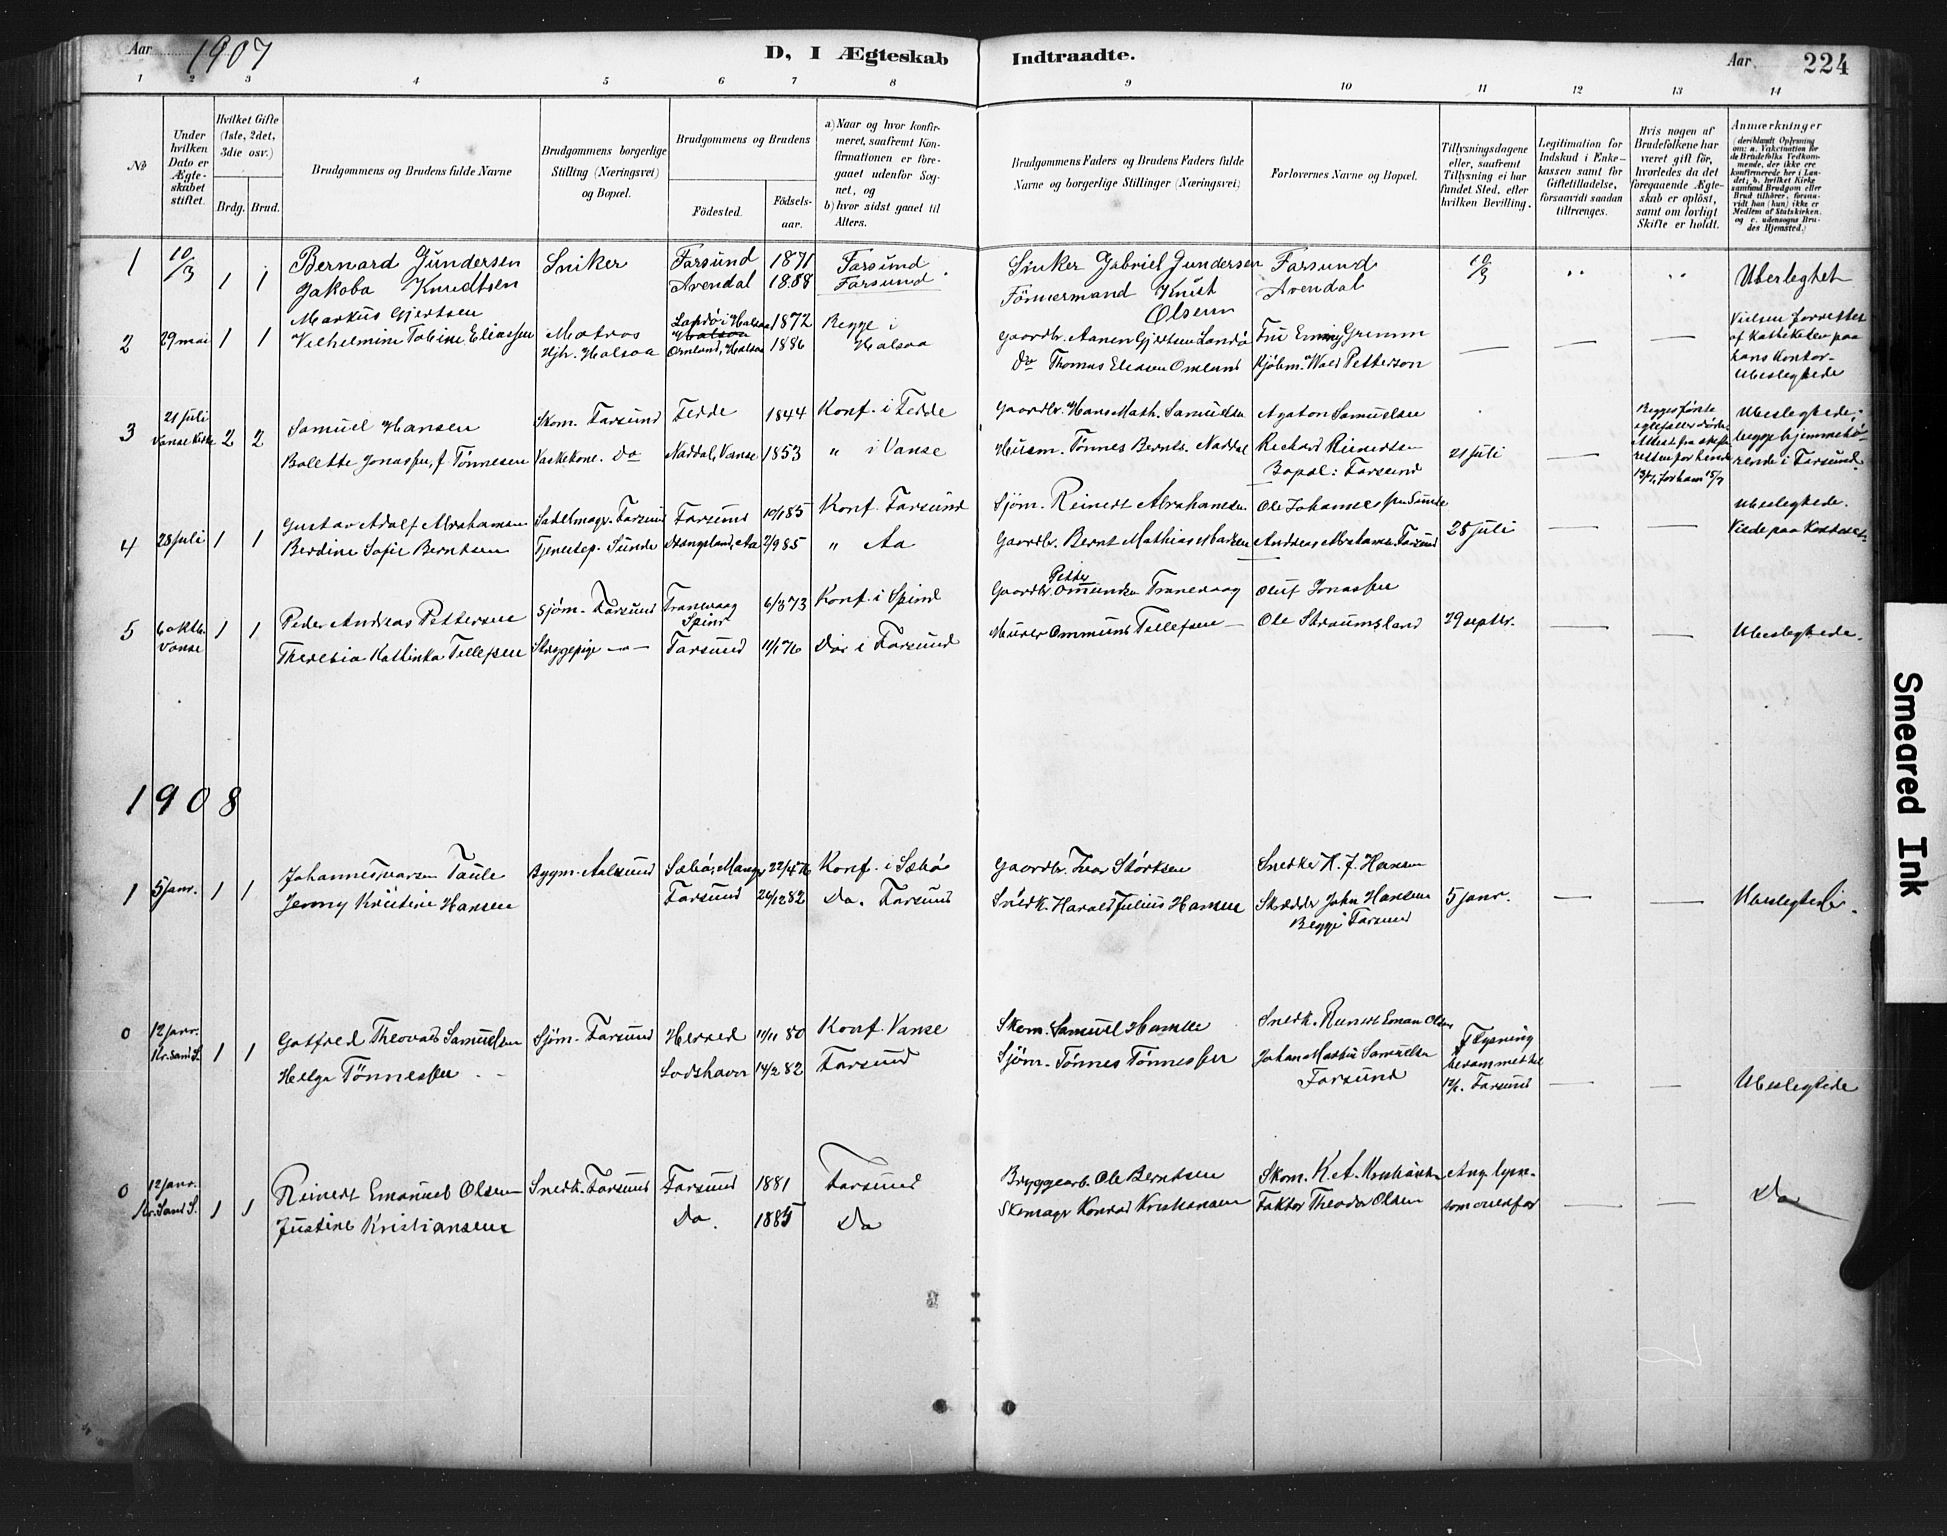 Aar 1907
D, I Ægteskab Indtraadte.
Aar 224
1 2 3 4 5 6 7 8 9 10 11 12 13 14
No
Under hvilken Dato er Ægteskabet stiftet.
Hvilket Gifte (1ste, 2det, 3die osv.)
Brdg. Brud.
Brudgommens og Brudens fulde Navne
Brudgommens borgerlige Stilling (Næringsvei) og Bopæl.
Brudgommens og Brudens
Födested. Födselsaar.
a) Naar og hvor konfirmeret, saafremt Konfirmationen er foregaaet udenfor Sognet, og b) hvor sidst gaaet til Alters.
Brudgommens Faders og Brudens Faders fulde Navne og borgerlige Stillinger (Næringsvei)
Forlovernes Navne og Bopæl.
Tillysningsdagene eller, saafremt Tillysning ei har fundet Sted, efter hvilken Bevilling.
Legitimation for Indskud i Enkekassen samt for Giftetilladelse, forsaavidt saadan tiltrænges.
Hvis nogen af Brudefolkene har været gift för, hvorledes da det foregaaende Ægteskab er oplöst, samt om lovligt Skifte er holdt.
Anmærkninger (deriblandt Oplysning om: a. Vakcination for de Brudefolks Vedkommende, der ikke ere konfirmerede her i Landet; b. hvilket Kirkesamfund Brudgom eller Brud tilhörer, forsaavidt han (hun) ikke er Medlem af Statskirken, og c. udensogns Brudes Hjemsted.)
1 10/3 1 1 Bernard Gundersen Sniker Farsund 1871 Farsund Sniker Gabriel Gundersen Farsund 10/3 " " Ubeslegtet
Jakoba Knudtsen Arendal 1888 Farsund Förmermand Knut Olsen Arendal
2 29 mai 1 1 Markus Gjertsen Matros Landö i Halsaa 1872 Begge i Halsaa Gaardbr. Aanen Gjertsen Landö Fru Emmy Grimm — — — Vielsen forrettet af Katheketen paa hans Kontor. Ubeslegtede
Vilhelmine Tobine Eliassen Hjh. Halsaa Omland, Halsaa 1886 Do Thomas Eliasen Omland Kjöbm. Wald Petterson
3 21 juli Vanse Kirke 2 2 Samuel Hansen Skom. Farsund Fedde 1844 Konf. i Fedde Gaardbr. Hans Math. Samuelsen Agaton Samuelsen 21 juli — Ubeslegtede; begge hjemmehörende i Farsund.
Bolette Jonassen, f. Tönnesen Vaskekone. Do Naddal, Vanse 1853 " i Vanse Husm. Tönnes Bernts. Naddal Richard Reinertsen
Bopæl: Farsund
4 28 juli 1 1 Gustav Adolf Abrahamsen Sadelmagr. Farsund Farsund 10/1 85 Konf. Farsund Sjöm. Reinert Abrahamsen Ole Johannessen Sunde 28 juli — — Ubeslegtede.
Berdine Sofie Berntsen Tjenestep. Sunde Stangeland, Aa 7/9 85 " Aa Gaardbr. Bernt Mathias Andreas Abrahamsen Farsund
5 6 oktb. Vanse 1 1 Peder Andreas Pettersen Sjöm. Farsund Tranevaag Spind 6/3 73 Konf. i Spind Gaardbr. Petter Omundsen Tranevaag Oluf Jonassen 29 septbr. — — Ubeslegtede.
Theresia Kathinka Tellefsen Strygepige —"— Farsund 11/1 76 Do i Farsund Murer Ommund Tellefsen Ole Straumsland
1908
1 5 janr. 1 1 Johannes Ivarsen Taule Bygm. Aalesund Sæbö, Manger 22/4 76 Konf. i Sæbö Gaardbr. Ivar Störksen Snedker H. J. Hansen 5 janr. — — Ubeslegtede.
Jenny Kristine Hansen Farsund 26/12 82 Do. Farsund Snedk. Harald Julius Hansen Skrædder John Hansen
Begge Farsund
0 12 janr. Kr.sand S. 1 1 Gotfred Theovald Samuelsen Sjöm. Farsund Herred 11/11 80 Konf. Vanse Skom. Samuel Hansen Snedk. Reinert Eman Olsen Tlysning — — Ubeslegtede
Helga Tönnessen Lodshavn 14/2 82 Farsund Sjöm. Tönnes Tönnessen Johan Martin Samuelsen Farsund 12/1. Farsund
0 12 janr. Kr.sand S. 1 1 Reinert Emanuel Olsen Snedk. Farsund Farsund 1881 Farsund Bryggearb. Ole Berntsen Skom. K. A. Kristiansen Ang. lysn. som ovenfor — — Do
Justine Kristiansen Do. 1885 Do Skomagr Konrad Kristiansen Faktor Theodor Olsen
Smeared Ink